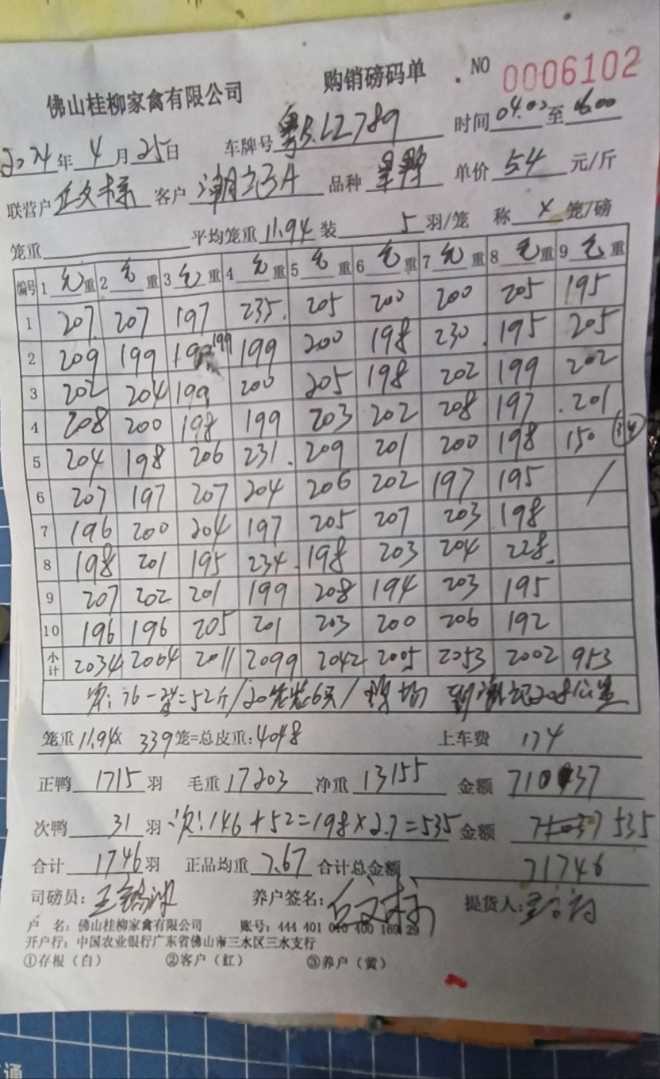 佛山桂柳家禽有限公司 购销磅码单 NO 0006102
2024年4月25日 车牌号 粤B.L2789 时间 04.00 至 6:00
联营户 客户 品种 单价 5.4 元/斤
笼重 平均笼重 11.94 装 5 羽/笼 称 X 笼/磅
编号 1 毛重 2 毛重 3 毛重 4 毛重 5 毛重 6 毛重 7 毛重 8 毛重 9 毛重
1 207 207 197 235 205 200 200 205 195
2 209 199 199 199 200 198 230 195 205
3 202 204 199 200 205 198 202 199 202
4 208 200 198 199 203 202 208 197 201
5 204 198 206 231 209 201 200 198 150
6 207 197 207 204 206 202 197 195 /
7 196 200 204 197 205 207 203 198
8 198 201 195 234 198 203 204 228
9 207 202 201 199 208 194 203 195
10 196 196 205 201 203 200 206 192
小计 2034 2004 2011 2099 2042 2005 2053 2002 953
次:76-24=52斤/20笼装6只/
笼重 11.94x 339笼=总皮重:4048 上车费 174
正鸭 1715 羽 毛重 17203 净重 13155 金额 71037
次鸭 31 羽 次:146+52=198×2.7=535 金额 535
合计 1746 羽 正品均重 7.67 合计总金额 71746
司磅员: 养户签名: 提货人:
户 名:佛山桂柳家禽有限公司 账号:444 401 010 400 169 29
开户行:中国农业银行广东省佛山市三水区三水支行
①存根(白) ②客户(红) ③养户(黄)